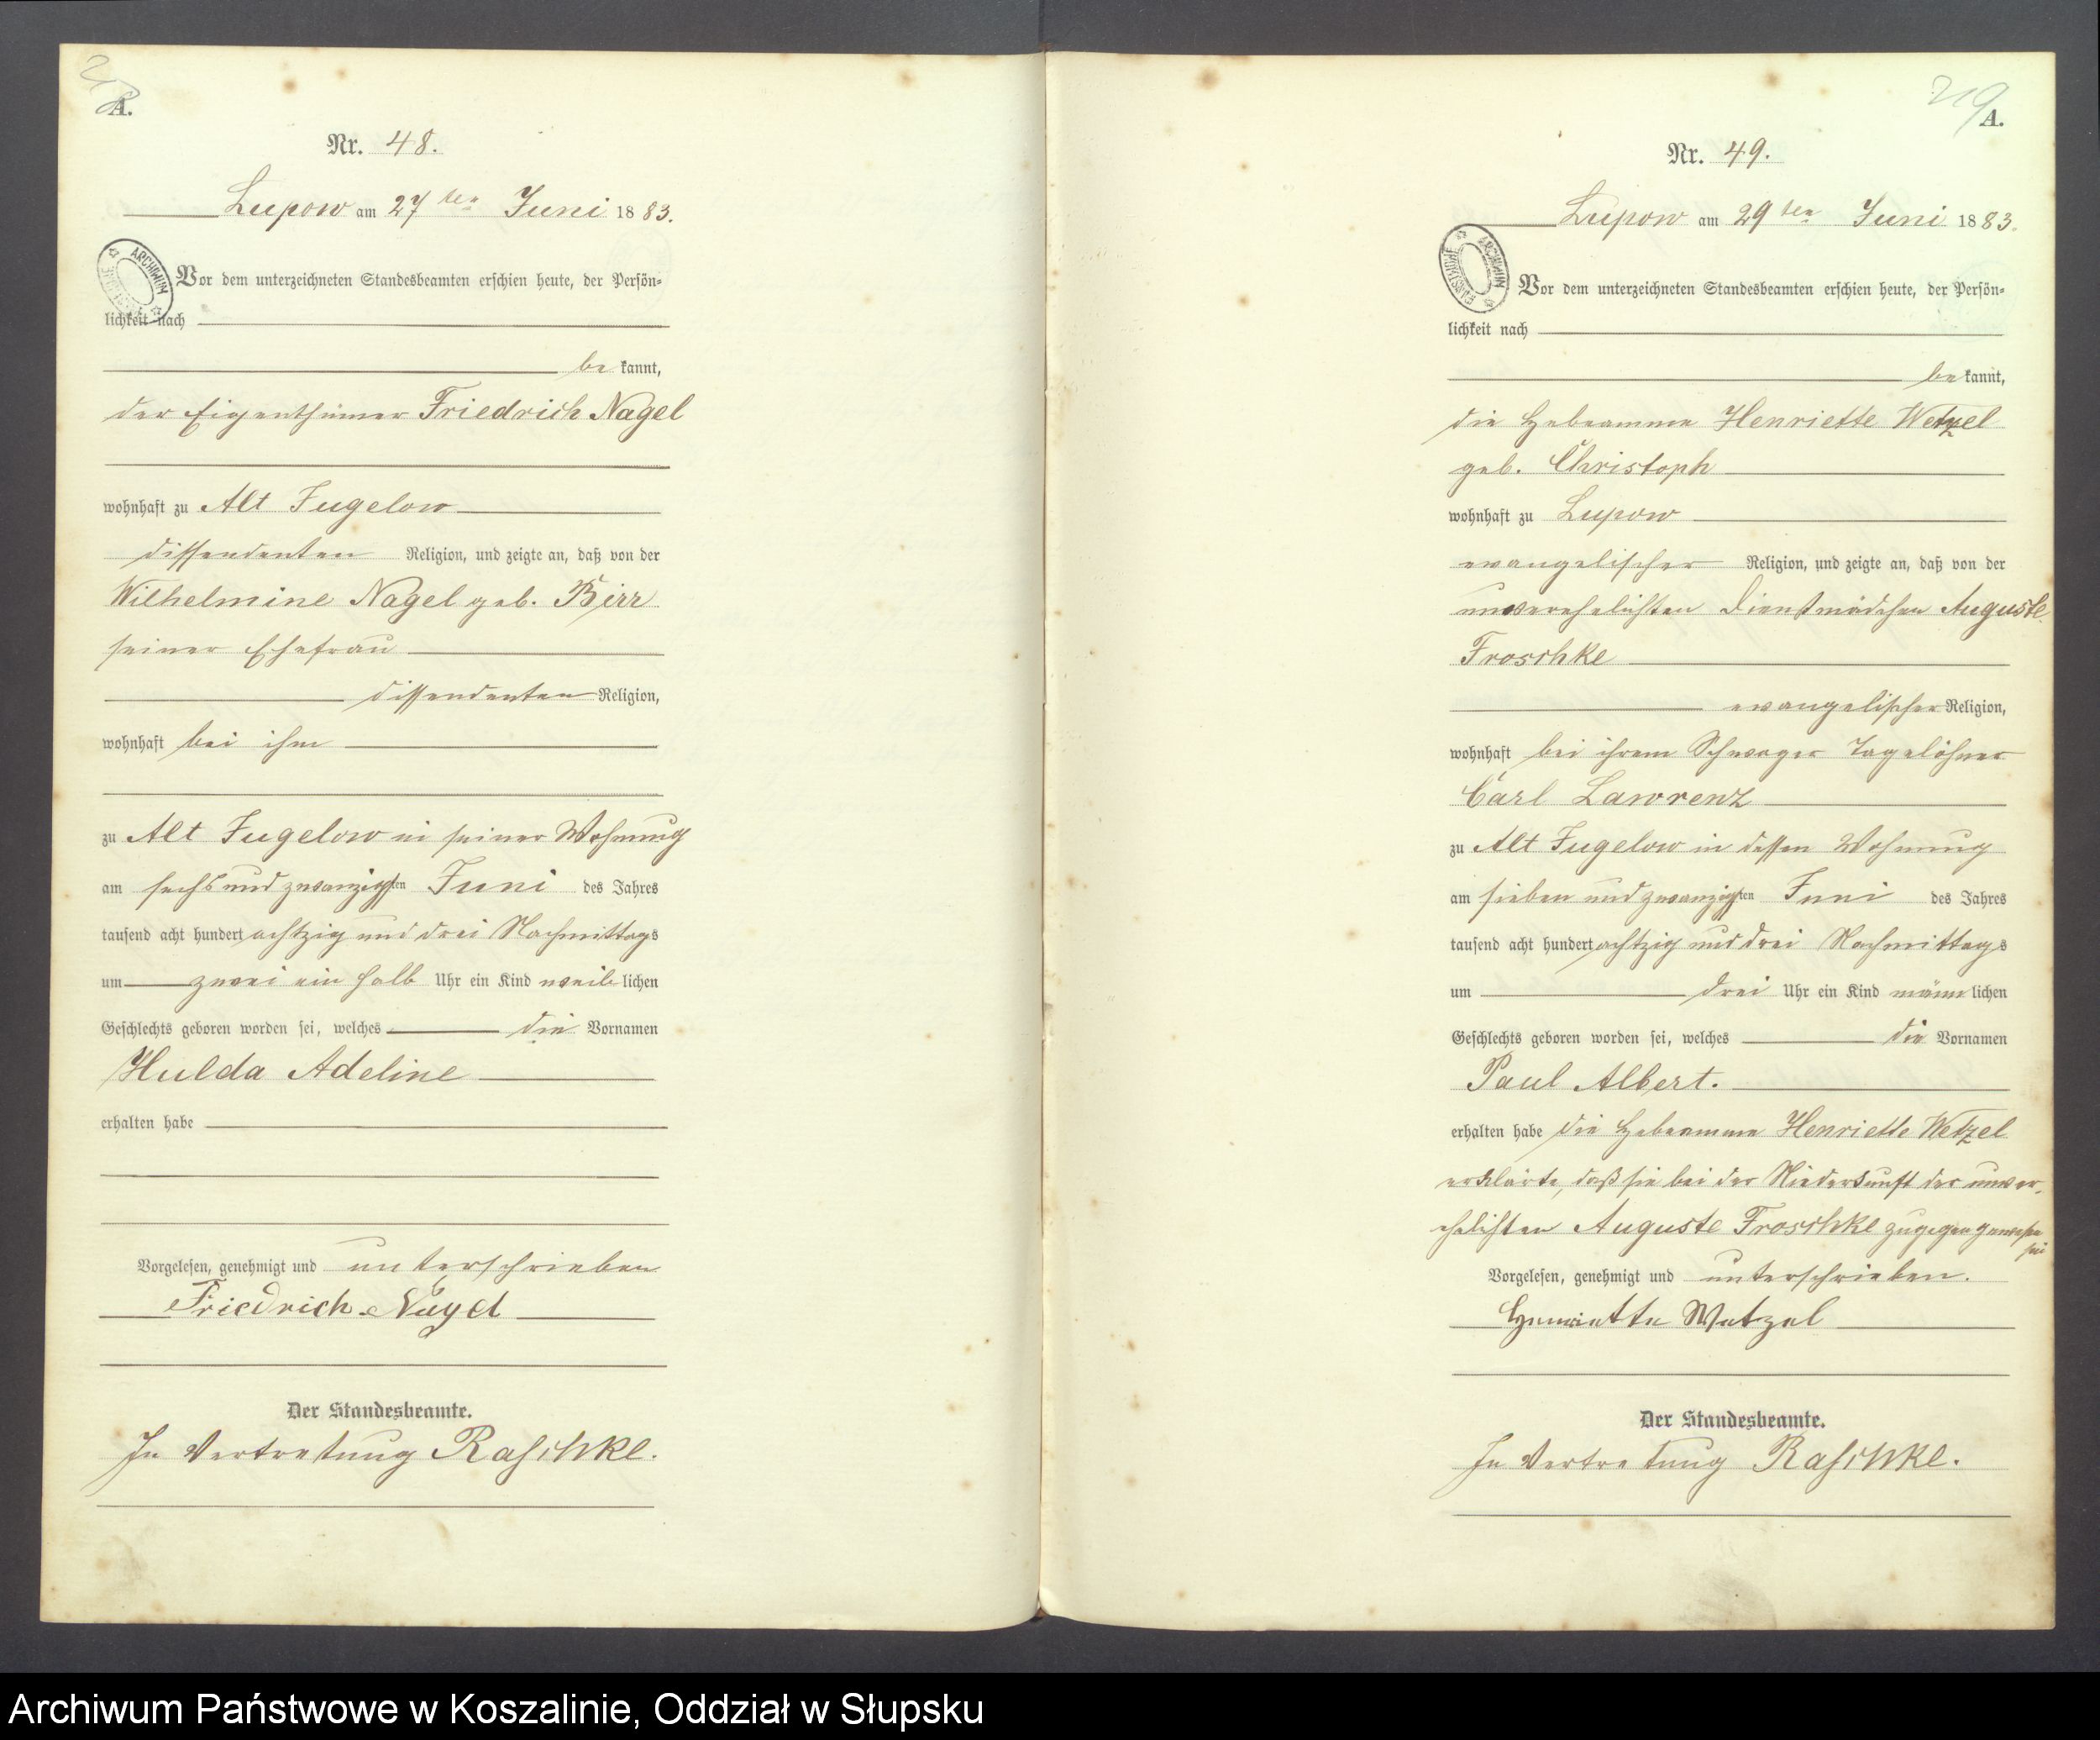 A.
Nr. 48.
Lupow am 27ten Juni 1883.
Vor dem unterzeichneten Standesbeamten erschien heute, der Persön-
lichkeit nach
bekannt,
der Eigenthümer Friedrich Nagel
wohnhaft zu Alt Jugelow
dissendenten Religion, und zeigte an, daß von der
Wilhelmine Nagel geb. Birr
seiner Ehefrau
dissendenten Religion,
wohnhaft bei ihm
zu Alt Jugelow in seiner Wohnung
am sechs und zwanzigsten Juni des Jahres
tausend acht hundert achtzig und drei Nachmittags
um zwei ein halb Uhr ein Kind weiblichen
Geschlechts geboren worden sei, welches die Vornamen
Hulda Adeline
erhalten habe
Vorgelesen, genehmigt und unterschrieben
Friedrich Nagel
Der Standesbeamte.
In Vertretung Raschke.
219
A.
Nr. 49.
Lupow am 29ten Juni 1883.
Vor dem unterzeichneten Standesbeamten erschien heute, der Persön-
lichkeit nach
bekannt,
die Hebeamme Henriette Wetzel
geb. Christoph
wohnhaft zu Lupow
evangelischer Religion, und zeigte an, daß von der
unverehelichten Dienstmädchen Auguste
Froschke
evangelischer Religion,
wohnhaft bei ihrem Schwager Tagelöhner
Carl Lawrenz
zu Alt Jugelow in dessen Wohnung
am sieben und zwanzigsten Juni des Jahres
tausend acht hundert achtzig und drei Nachmittags
um drei Uhr ein Kind männlichen
Geschlechts geboren worden sei, welches die Vornamen
Paul Albert.
erhalten habe die Hebeamme Henriette Wetzel
erklärte, daß sie bei der Niederkunft der unver-
ehelichten Auguste Froschke zugegen gewesen
sei
Vorgelesen, genehmigt und unterschrieben.
Henriette Wetzel
Der Standesbeamte.
In Vertretung Raschke.
Archiwum Państwowe w Koszalinie, Oddział w Słupsku